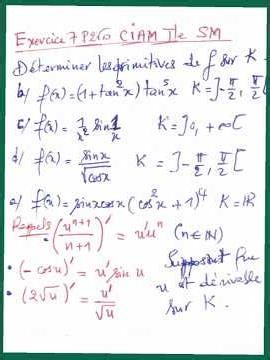 Exercice 7 P210 CIAM Tle SM
Déterminer les primitives de f sur K
b/ f(x) = (1+tan²x)tan⁵x K = ]-π/2, π/2[
c/ f(x) = 1/x² sin 1/x K = ]0, +∞[
d/ f(x) = sinx/√cosx K = ]-π/2, π/2[
e/ f(x) = sinxcosx(cos²x+1)⁴ K = ℝ
Rappels
• (uⁿ⁺¹/(n+1))' = u'uⁿ (n∈ℕ)
• (-cosu)' = u'sin u
• (2√u)' = u'/√u
Supposent que
u est dérivable
sur K.